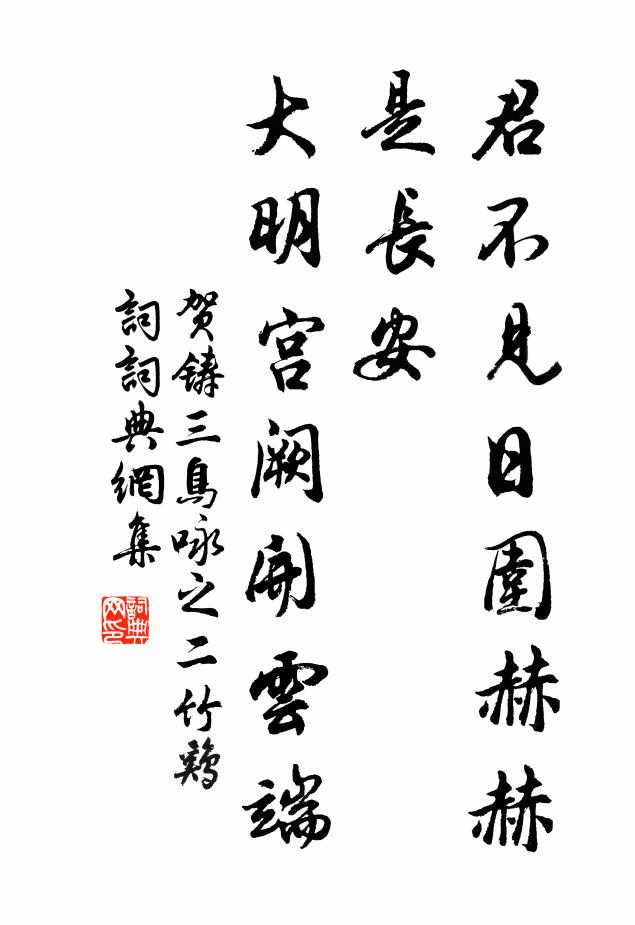 君不見日圍赫赫
是長安
大明宫阙開雲端
贺鑄三鳥咏之二竹鷄
詞詞典網集
詞典网印